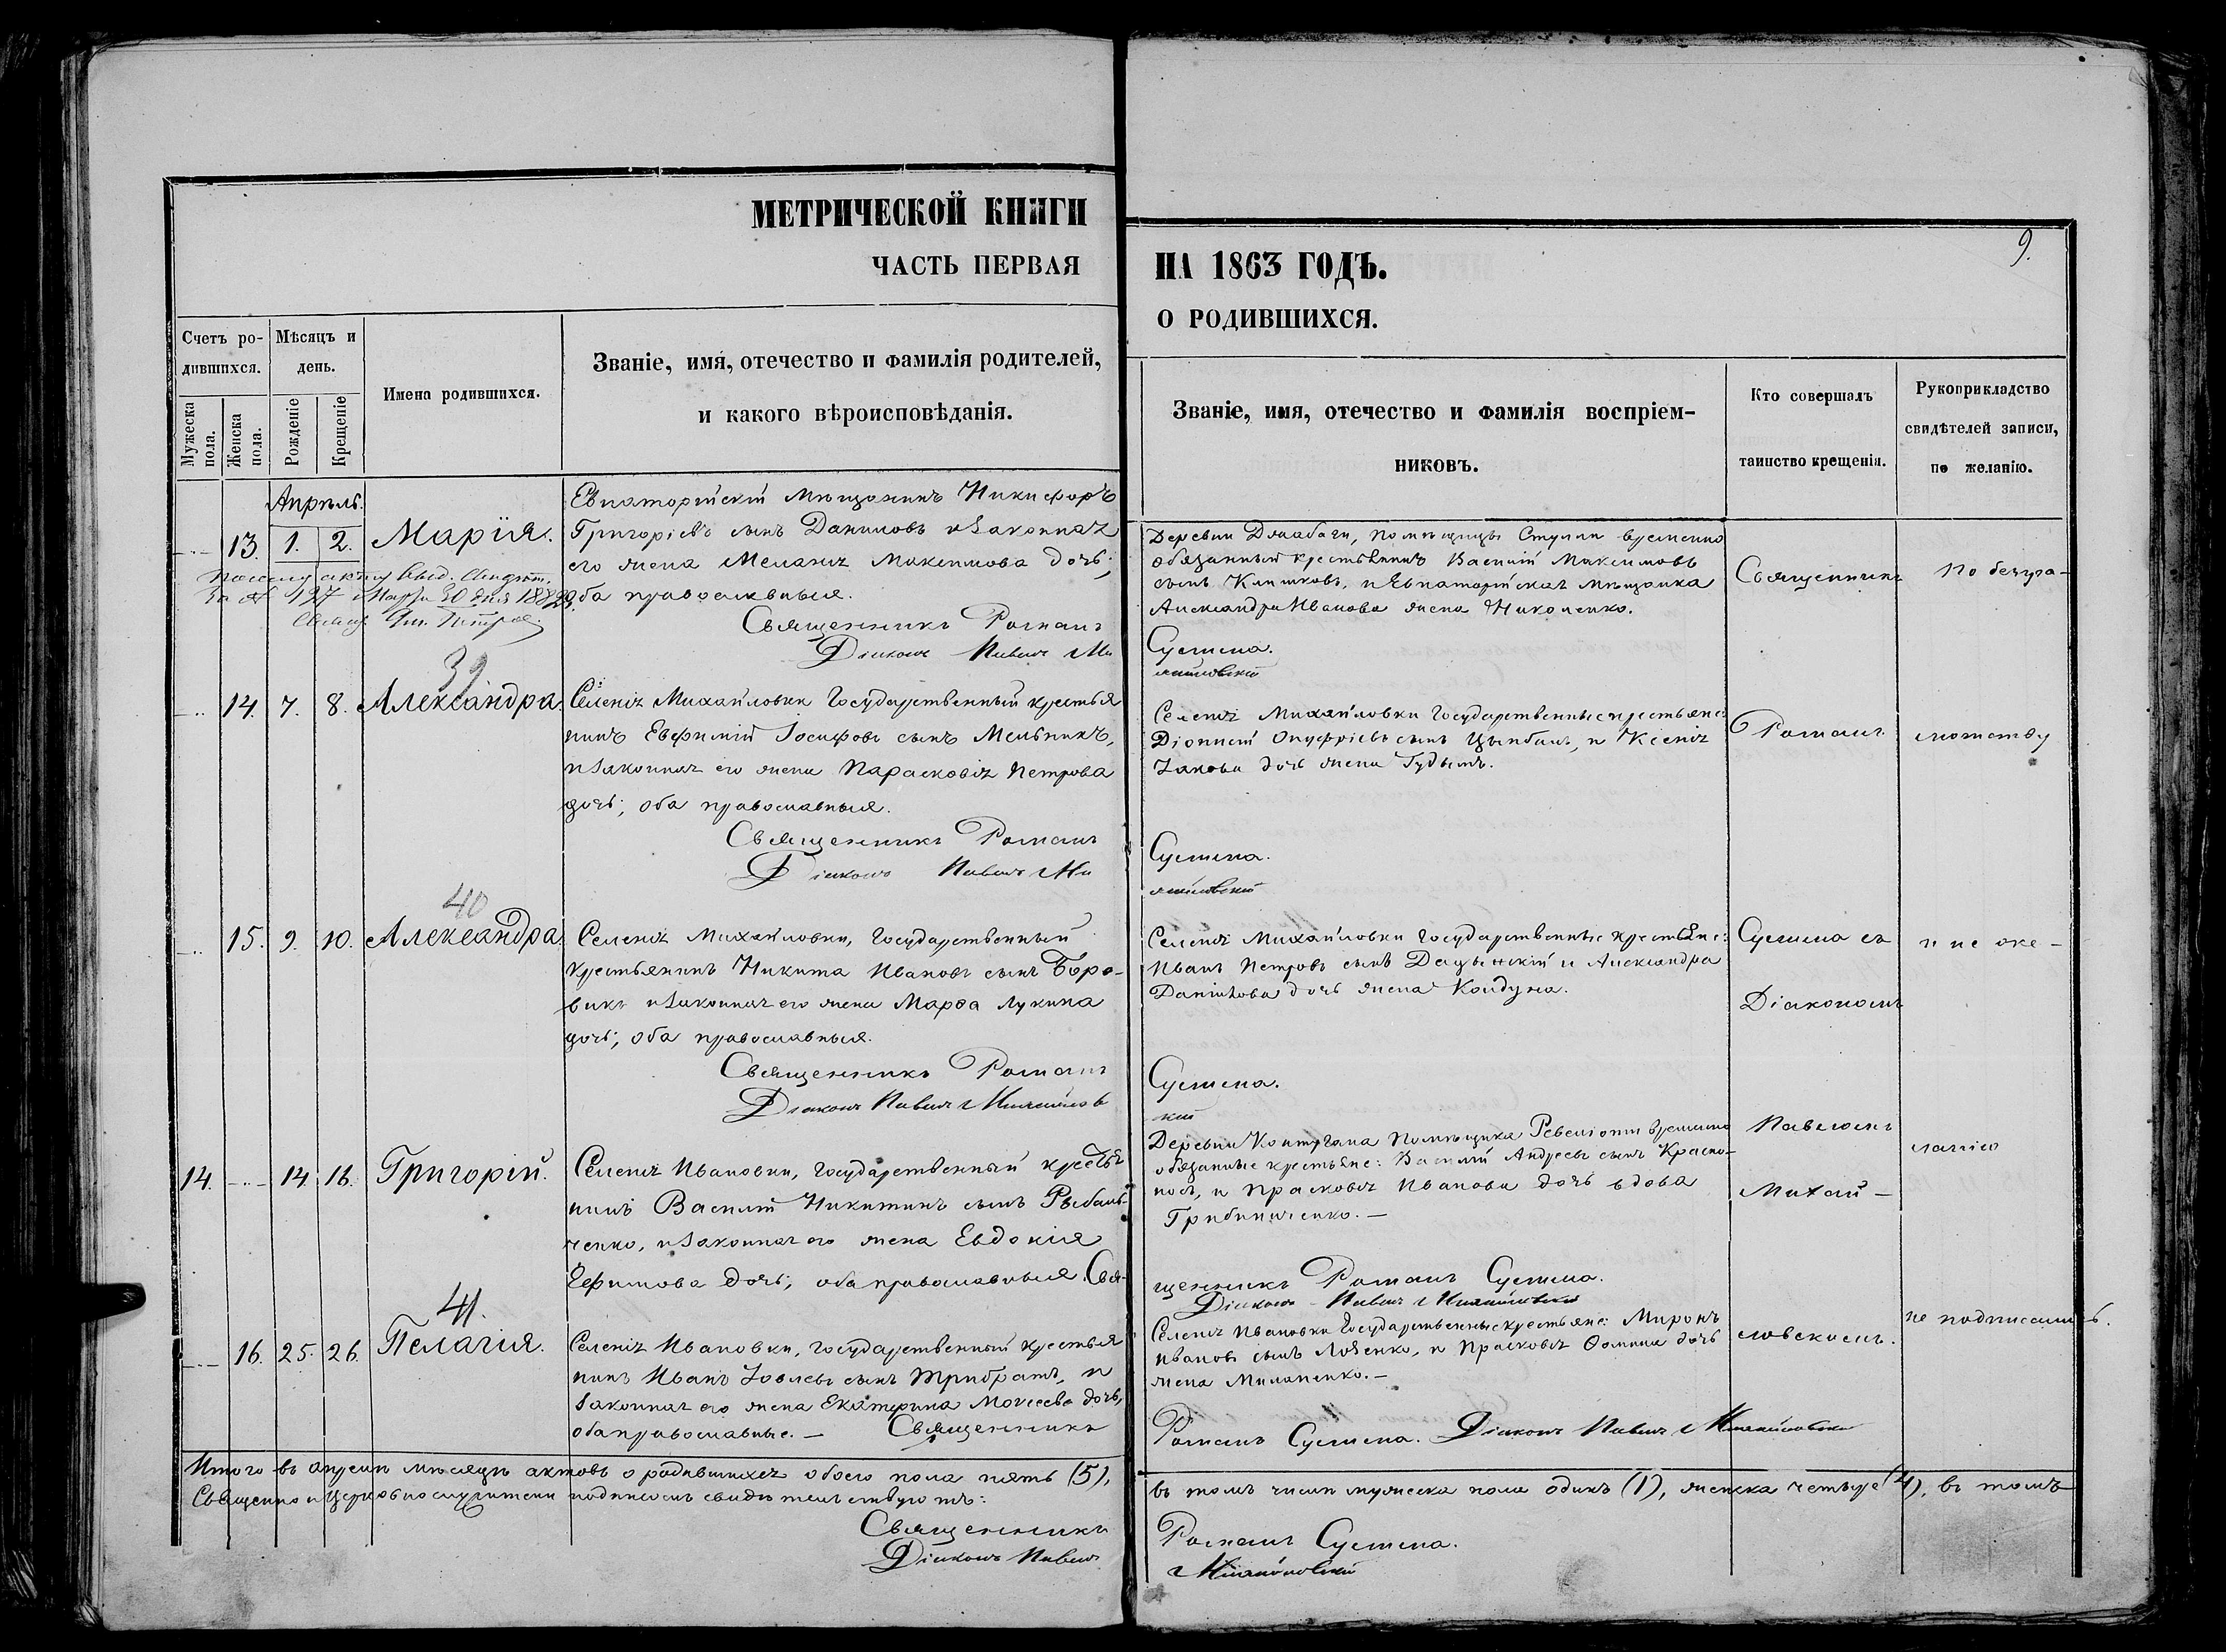 МЕТРИЧЕСКОЙ КНИГИ
ЧАСТЬ ПЕРВАЯ
Счетъ ро-
дившихся.
Мужеска
пола.
Женска
пола.
Мѣсяцъ и
день.
Рожденіе
Крещеніе
Имена родившихся.
Званіе, имя, отечество и фамилія родителей,
и какого вѣроисповѣданія.
Апрѣль.
13. 1. 2. Марія.
Евпаторійскій мѣщанинъ Никифоръ
Григорьевъ сынъ Даниловъ и законная
его жена Меланія Максимова дочь;
оба православныя.
Священникъ Романъ
Діаконъ Павелъ Ми
39
14. 7. 8. Александра.
Селенія Михайловки Государственный крестья
нинъ Евфимій Іосифовъ сынъ Мельникъ,
и законная его жена Парасковія Петрова
дочь; оба православныя.
Священникъ Романъ
Діаконъ Павелъ Ми
40
15. 9. 10. Александра
Селенія Михайловки, Государственный
крестьянинъ Никита Ивановъ сынъ Боро-
викъ и законная его жена Марѳа Лукина
дочь; оба православныя.
Священникъ Романъ
Діаконъ Павелъ Михайловс
14. 14. 16. Григорій.
Селенія Ивановки, государственный крестья
нинъ Василій Никитинъ сынъ Рыбаль-
ченко, и законная его жена Евдокія
Ефимова дочь; оба православныя. Свя-
41.
16. 25. 26. Пелагія.
Селенія Ивановки, государственный крестья
нинъ Иванъ Іовлевъ сынъ Трибратъ, и
законная его жена Екатерина Моисеева дочь,
оба православные. — Священникъ
Итого въ апрѣлѣ мѣсяцѣ актовъ о родившихся обоего пола пять (5),
Священно и Церковнослужители подписомъ свидѣтельствуютъ:
Священникъ
Діаконъ Павелъ
9.
НА 1863 ГОДЪ.
О РОДИВШИХСЯ.
Званіе, имя, отечество и фамилія воспріем-
никовъ.
Кто совершалъ
таинство крещенія.
Рукоприкладство
свидѣтелей записи,
по желанію.
Деревни помѣщицы временно
обязанный крестьянинъ Василій Максимовъ
сынъ Климковъ, и Евпаторійская мѣщанка
Александра Иванова жена Николенко.
Сушма.
хайловскій
Селенія Михайловки Государственные крестьяне:
Діонисій Онуфріевъ сынъ Цымбалъ, и Ксенія
Іакова дочь жена Гудымъ.
Сушма.
хайловскій
Селенія Михайловки государственные крестьяне:
Иванъ Петровъ сынъ и Александра
Даніилова дочь жена Колдуна.
Сушма.
кій
Деревни Контугана Помѣщика Ревеліоти временно
обязанные крестьяне: Василій Андреевъ сынъ Красно-
носъ, и Прасковія Иванова дочь вдова
Грибиниченко. —
щенникъ Романъ Сушма.
Діаконъ Павелъ Михайловскій
Селенія Ивановки Государственные крестьяне: Миронъ
Ивановъ сынъ Лозенко, и Прасковія Ѳомина дочь
жена Миланенко. —
Романъ Сушма. Діаконъ Павелъ Михайловскій
Священникъ
Романъ
Сушма съ
Діакономъ
Павломъ
Михай —
ловскимъ.
По безгра-
мотству
и не же —
ланію
не подписались.
въ томъ числѣ мужеска пола одинъ (1), женска четыре (4), въ томъ
Романъ Сушма.
Михайловскій